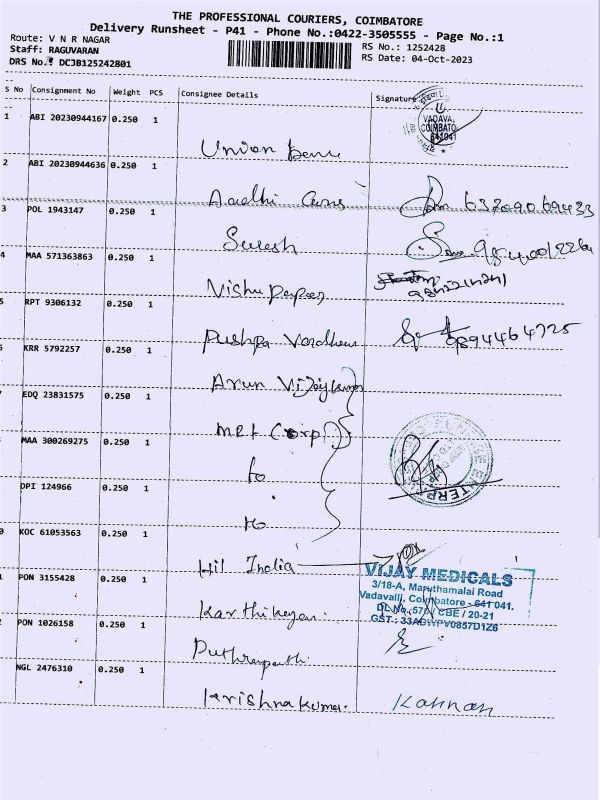 THE PROFESSIONAL COURIERS, COIMBATORE
Delivery Runsheet - P41 - Phone No.:0422-3505555 - Page No.:1
Route: V N R NAGAR
Staff: RAGUVARAN
DRS No. DCJB125242801
RS No.: 1252428
RS Date: 04-Oct-2023
S No Consignment No Weight PCS Consignee Details Signature
1 ABI 20230944167 0.250 1
VADAVA
COIMBATO
641041
Union Bank
2 ABI 20230944636 0.250 1
Aadhi Cars
3 POL 1943147 0.250 1
Suresh
4 MAA 571363863 0.250 1
Vishu papers
5 RPT 9306132 0.250 1
Pushpa Vardhan 9894464725
KRR 5792257 0.250 1
Arun Vijaykumar
EDQ 23831575 0.250 1
MRF Corp
MAA 300269275 0.250 1
to
DPI 124966 0.250 1
to
ENTERP
0 KOC 61053563 0.250 1
Hil India
1 PON 3155428 0.250 1
Karthikeyan
VIJAY MEDICALS
3/18-A, Maruthamalai Road
Vadavalli, Coimbatore - 641 041.
DL No. 570 / CBE / 20-21
GST : 33ADWPV0857D1Z6
PON 1026158 0.250 1
NGL 2476310 0.250 1
Krishnakumar. Kannan